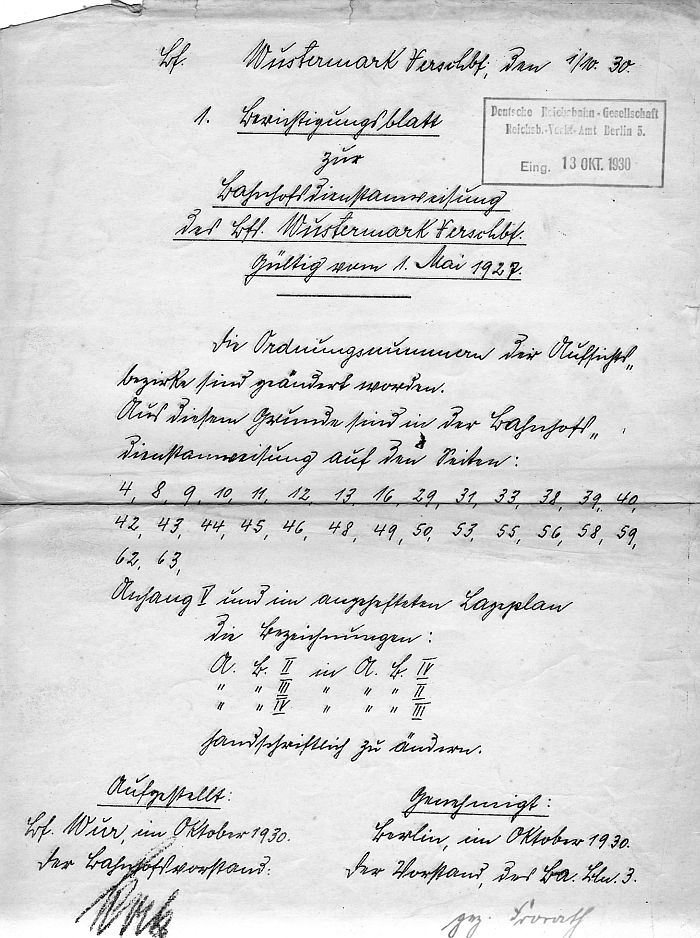 Bf. Wustermark Verschbf, den 1/10. 30.
Deutsche Reichsbahn-Gesellschaft
Reichsb.-Verk.-Amt Berlin 3.
Eing. 13 OKT. 1930
1. Berichtigungsblatt
zur
Bahnhofsdienstanweisung
des Bfs. Wustermark Verschbf.
Gültig vom 1. Mai 1927.
Die Ordnungsnummern der Aufsichts„
bezirke sind geändert worden.
Aus diesem Grunde sind in der Bahnhofs„
dienstanweisung auf den Seiten:
4, 8, 9, 10, 11, 12, 13, 16, 29, 31, 33, 38, 39, 40,
42, 43, 44, 45, 46, 48, 49, 50, 53, 55, 56, 58, 59,
62, 63,
Anhang V und im angehefteten Lageplan
die Bezeichnungen:
A. B. II in A. B. IV
" " III " " " II
" " IV " " " III
handschriftlich zu ändern.
Aufgestellt:
Bf. Wur, im Oktober 1930.
Der Bahnhofsvorstand.
Genehmigt:
Berlin, im Oktober 1930.
Der Vorstand, des Ba. Bln. 3.
gez.